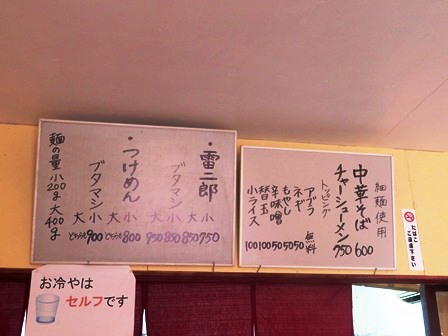 ・雷二郎
小 750
大 850
ブタマシ
小 850
大 950
・つけめん
小 800
大 どちらも
ブタマシ
小 900
大 どちらも
麺の量 小200g 大400g
細麺使用
中華そば 600
チャーシューメン 750
トッピング
アブラ 無料
ネギ 50
もやし 50
辛味噌 50
替玉 100
小ライス 100
たばこ
ご遠慮下さい
お冷やは
セルフです